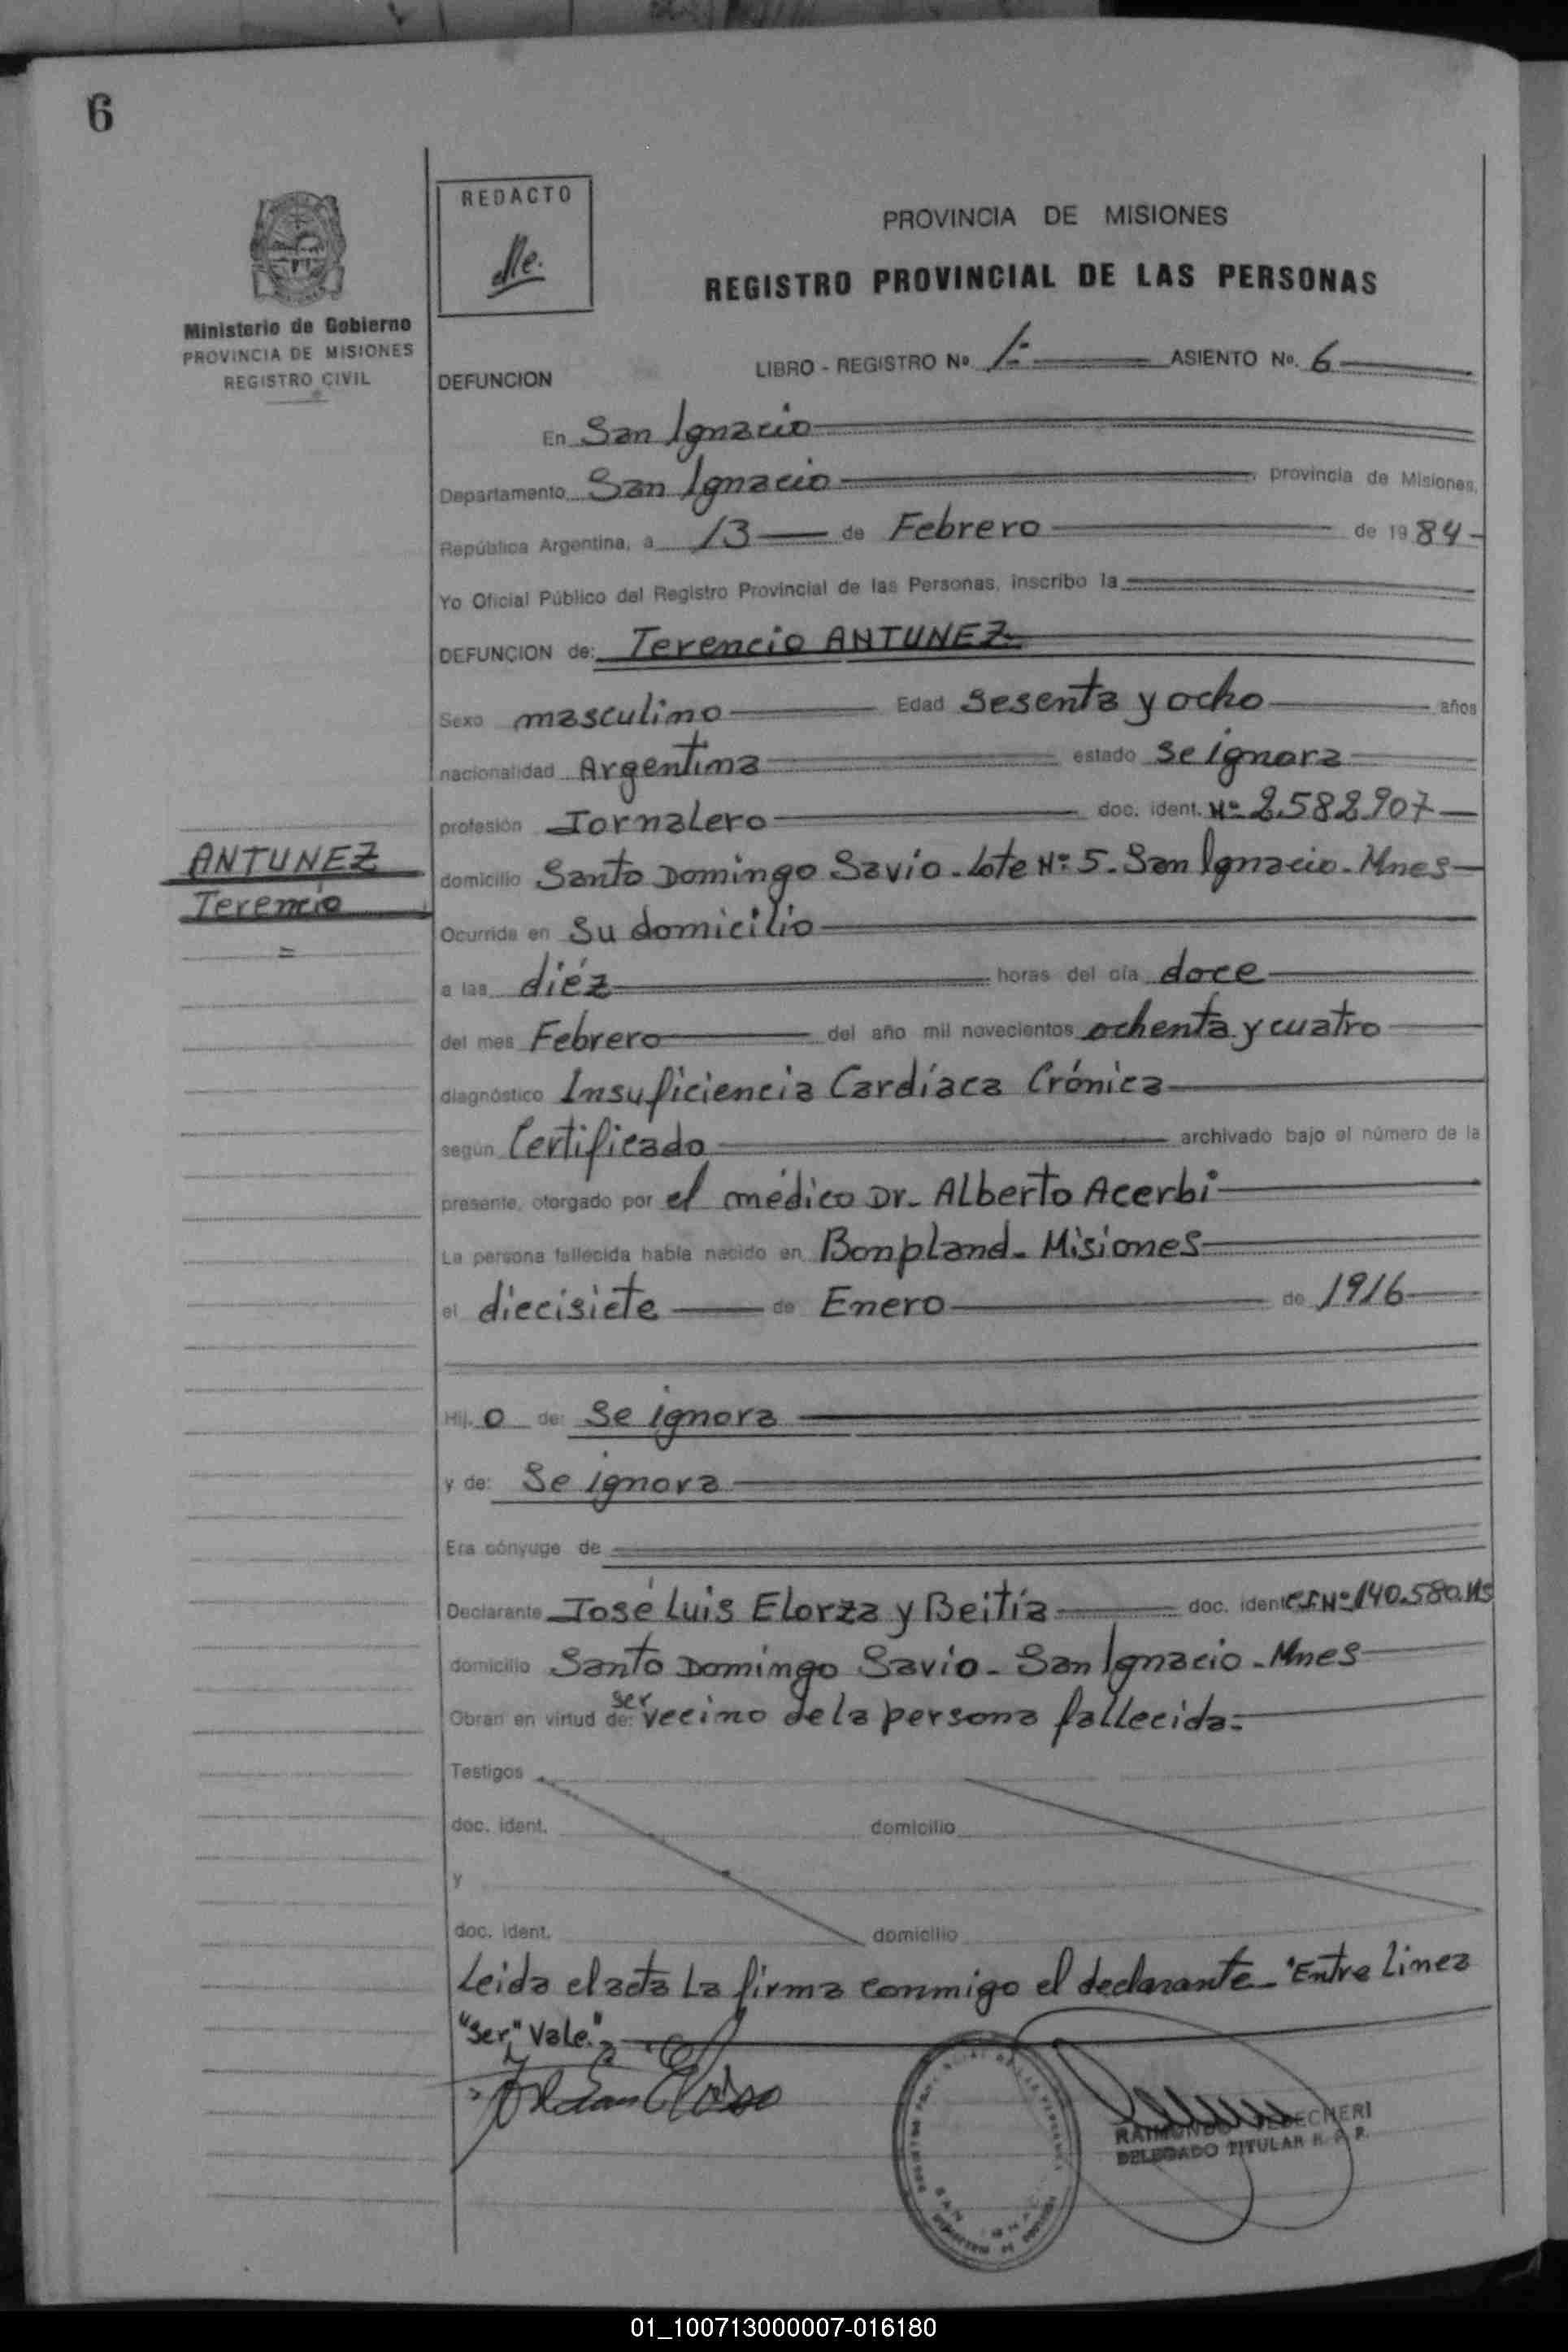 6
REDACTO
Ministerio de Gobierno
PROVINCIA DE MISIONES
REGISTRO CIVIL
PROVINCIA DE MISIONES
REGISTRO PROVINCIAL DE LAS PERSONAS
LIBRO - REGISTRO Nº 1: ASIENTO Nº. 6
DEFUNCION
En San Ignacio
Departamento San Ignacio provincia de Misiones,
República Argentina, a 13 de Febrero de 1984
Yo Oficial Público del Registro Provincial de las Personas, inscribo la
DEFUNCION de: Terencio ANTUNEZ
Sexo masculino Edad sesenta y ocho años
nacionalidad Argentina estado se ignora
profesión Jornalero doc. ident. Nº 2.582.907
ANTUNEZ
Terencio
domicilio Santo Domingo Savio - Lote Nº 5 - San Ignacio - Mnes
Ocurrida en Su domicilio
a las diéz horas del día doce
del mes Febrero del año mil novecientos ochenta y cuatro
diagnóstico Insuficiencia Cardíaca Crónica
según Certificado archivado bajo el número de la
presente, otorgado por el médico Dr. Alberto Acerbi
La persona fallecida había nacido en Bonpland - Misiones
el diecisiete de Enero de 1916
Hij o de: Se ignora
y de: Se ignora
Era cónyuge de
Declarante José Luis Elorza y Beitía doc. ident. Nº 140.580
domicilio Santo Domingo Savio - San Ignacio - Mnes
Obran en virtud de: ser vecino de la persona fallecida.-
Testigos
doc. ident. domicilio
y
doc. ident. domicilio
Leida el acta la firma conmigo el declarante - "Entre linea
"ser" Vale".-
RAIMUNDO
DELEGADO TITULAR R. P. P.
01_100713000007-016180